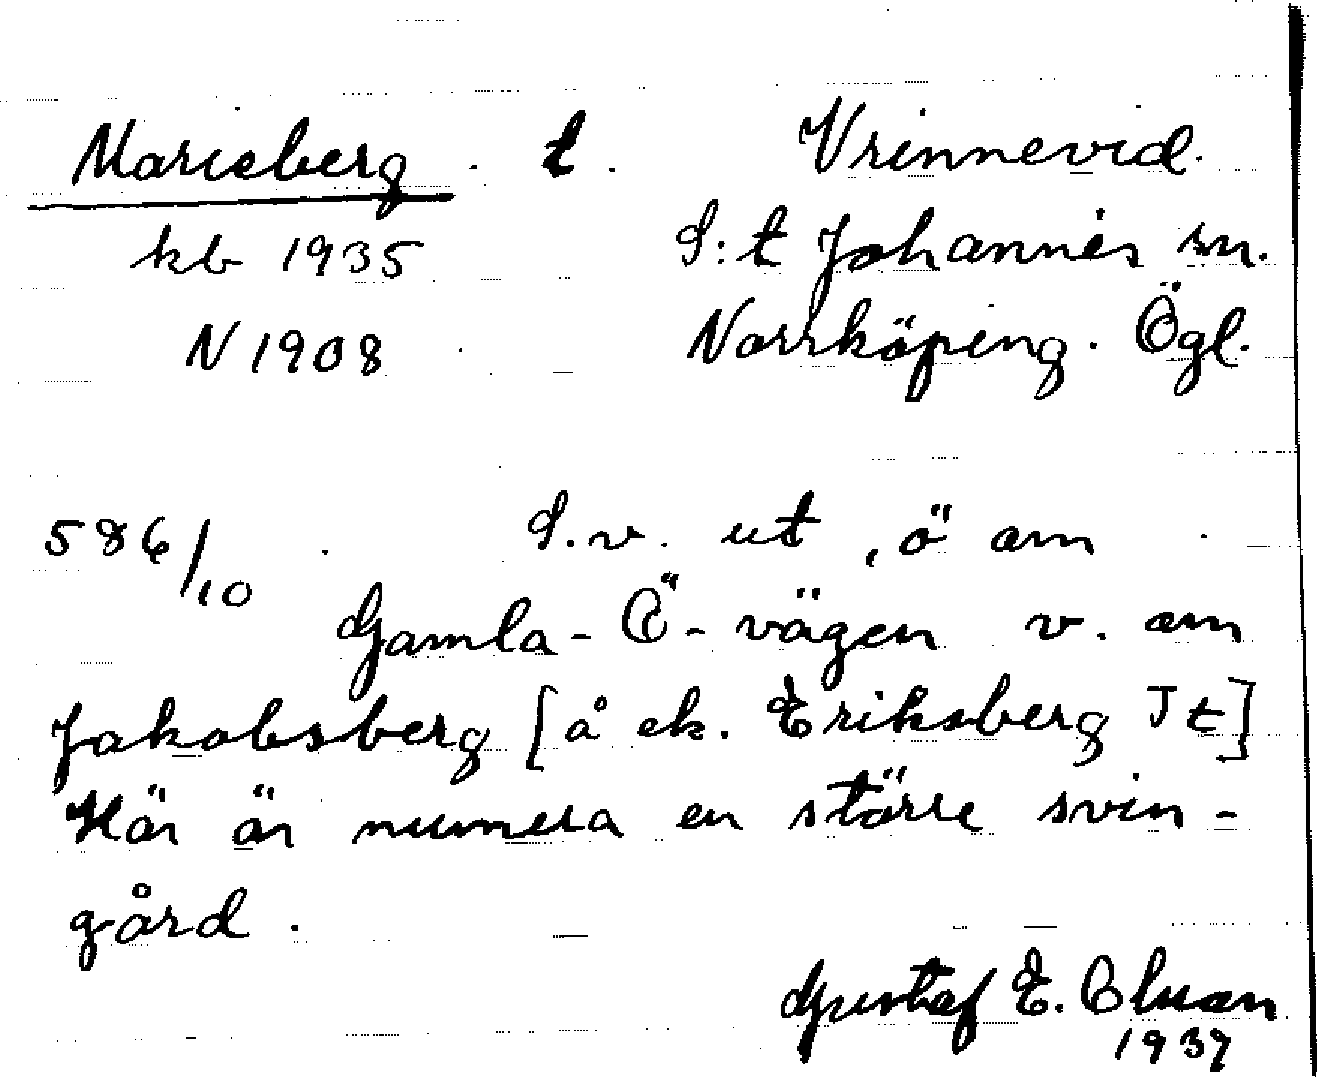 Marieberg . t . Vrinnevid.
kb 1935 S:t Johannes sn.
N 1908 Norrköping. Ögl.
586/10 S.v. ut, ö om
Gamla-Ö-vägen v. om
Jakobsberg [å ek. Eriksberg J t]
Här är numera en större svin-
gård.
Gustaf E.
1937